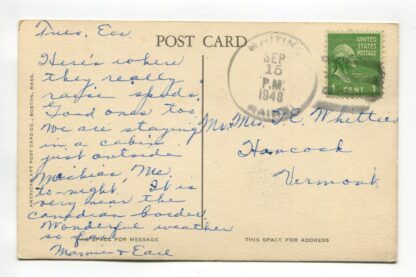 Tues, Eve
Here's where
they really
raise spuds.
Good ones too.
We are staying
in a cabin
just outside
Machias, Me.
to-night. It is
very near the
Canadian border.
Wonderful weather
so far.
Mamie & Earl
THIS SPACE FOR MESSAGE
AMERICAN ART POST CARD CO., BOSTON, MASS.
POST CARD
WHITIN
SEP
15
P.M.
1948
MAINE
UNITED STATES
POSTAGE
1 CENT 1
Mr. Mrs. F.E. Whittier
Hancock
Vermont
THIS SPACE FOR ADDRESS